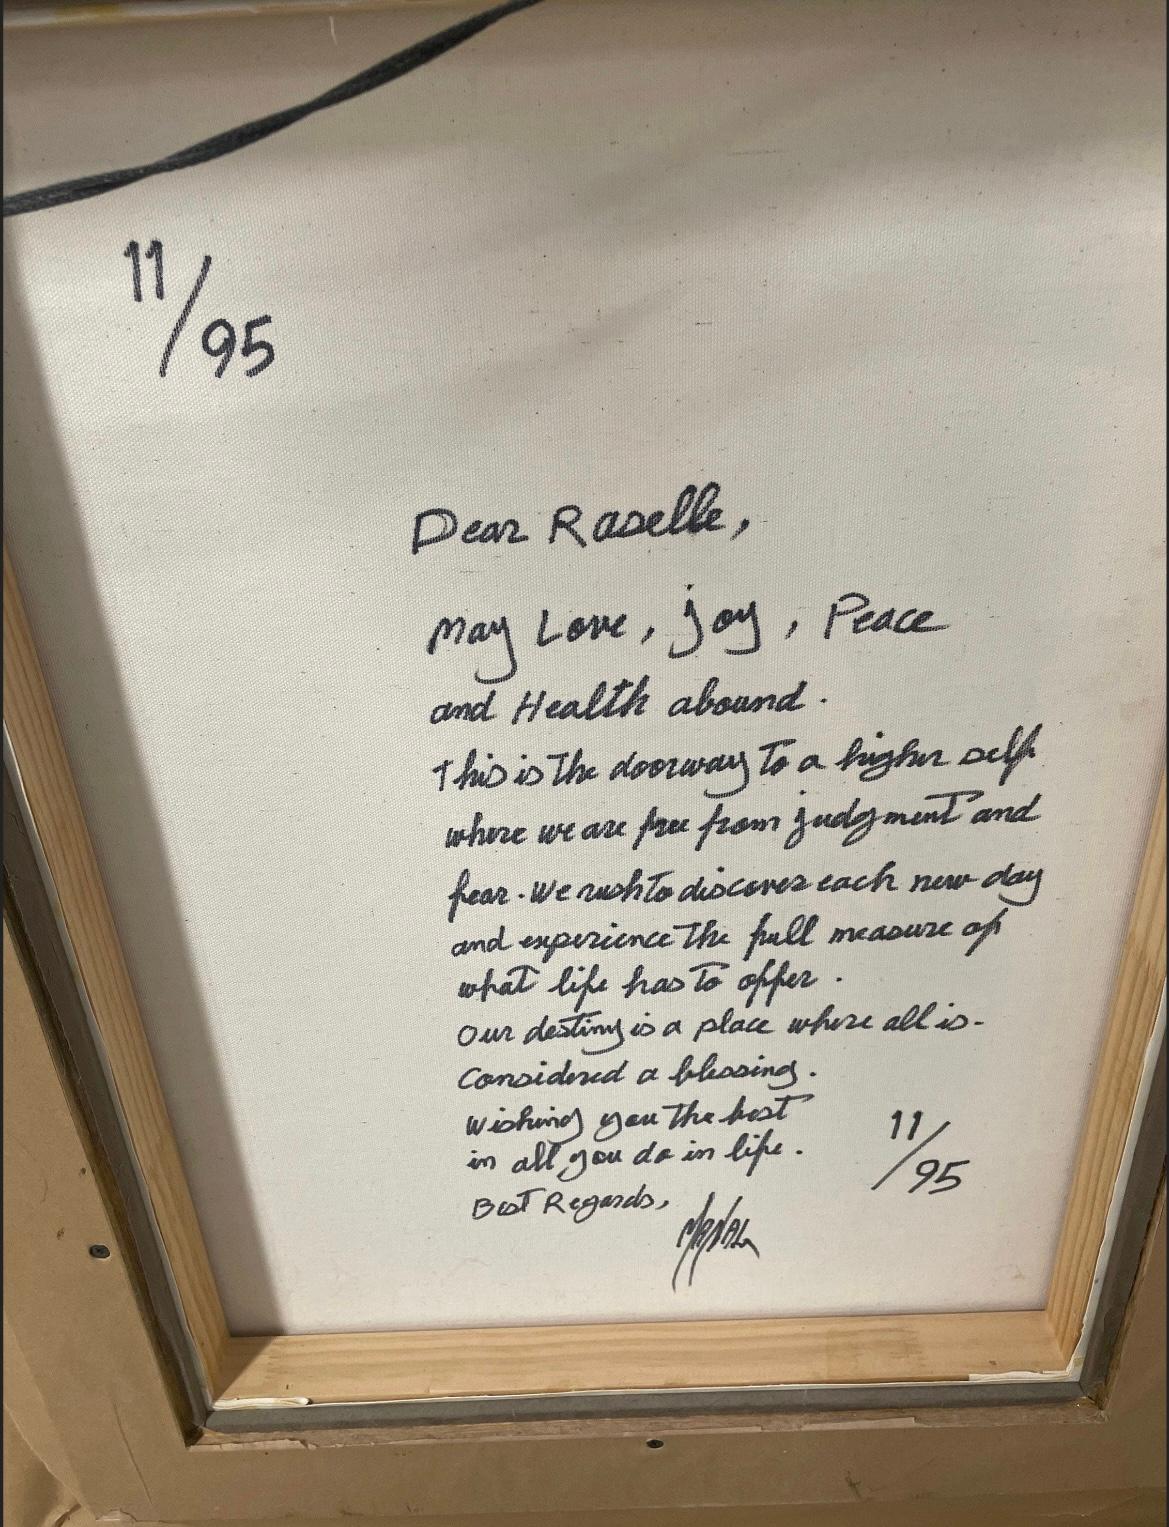 11/95
Dear Raselle,
May Love, joy, Peace
and Health abound.
This is the doorway to a higher self
where we are free from judgment and
fear. We rush to discover each new day
and experience the full measure of
what life has to offer.
Our destiny is a place where all is-
Considered a blessing.
Wishing you the best
in all you do in life.
11/95
Best Regards,